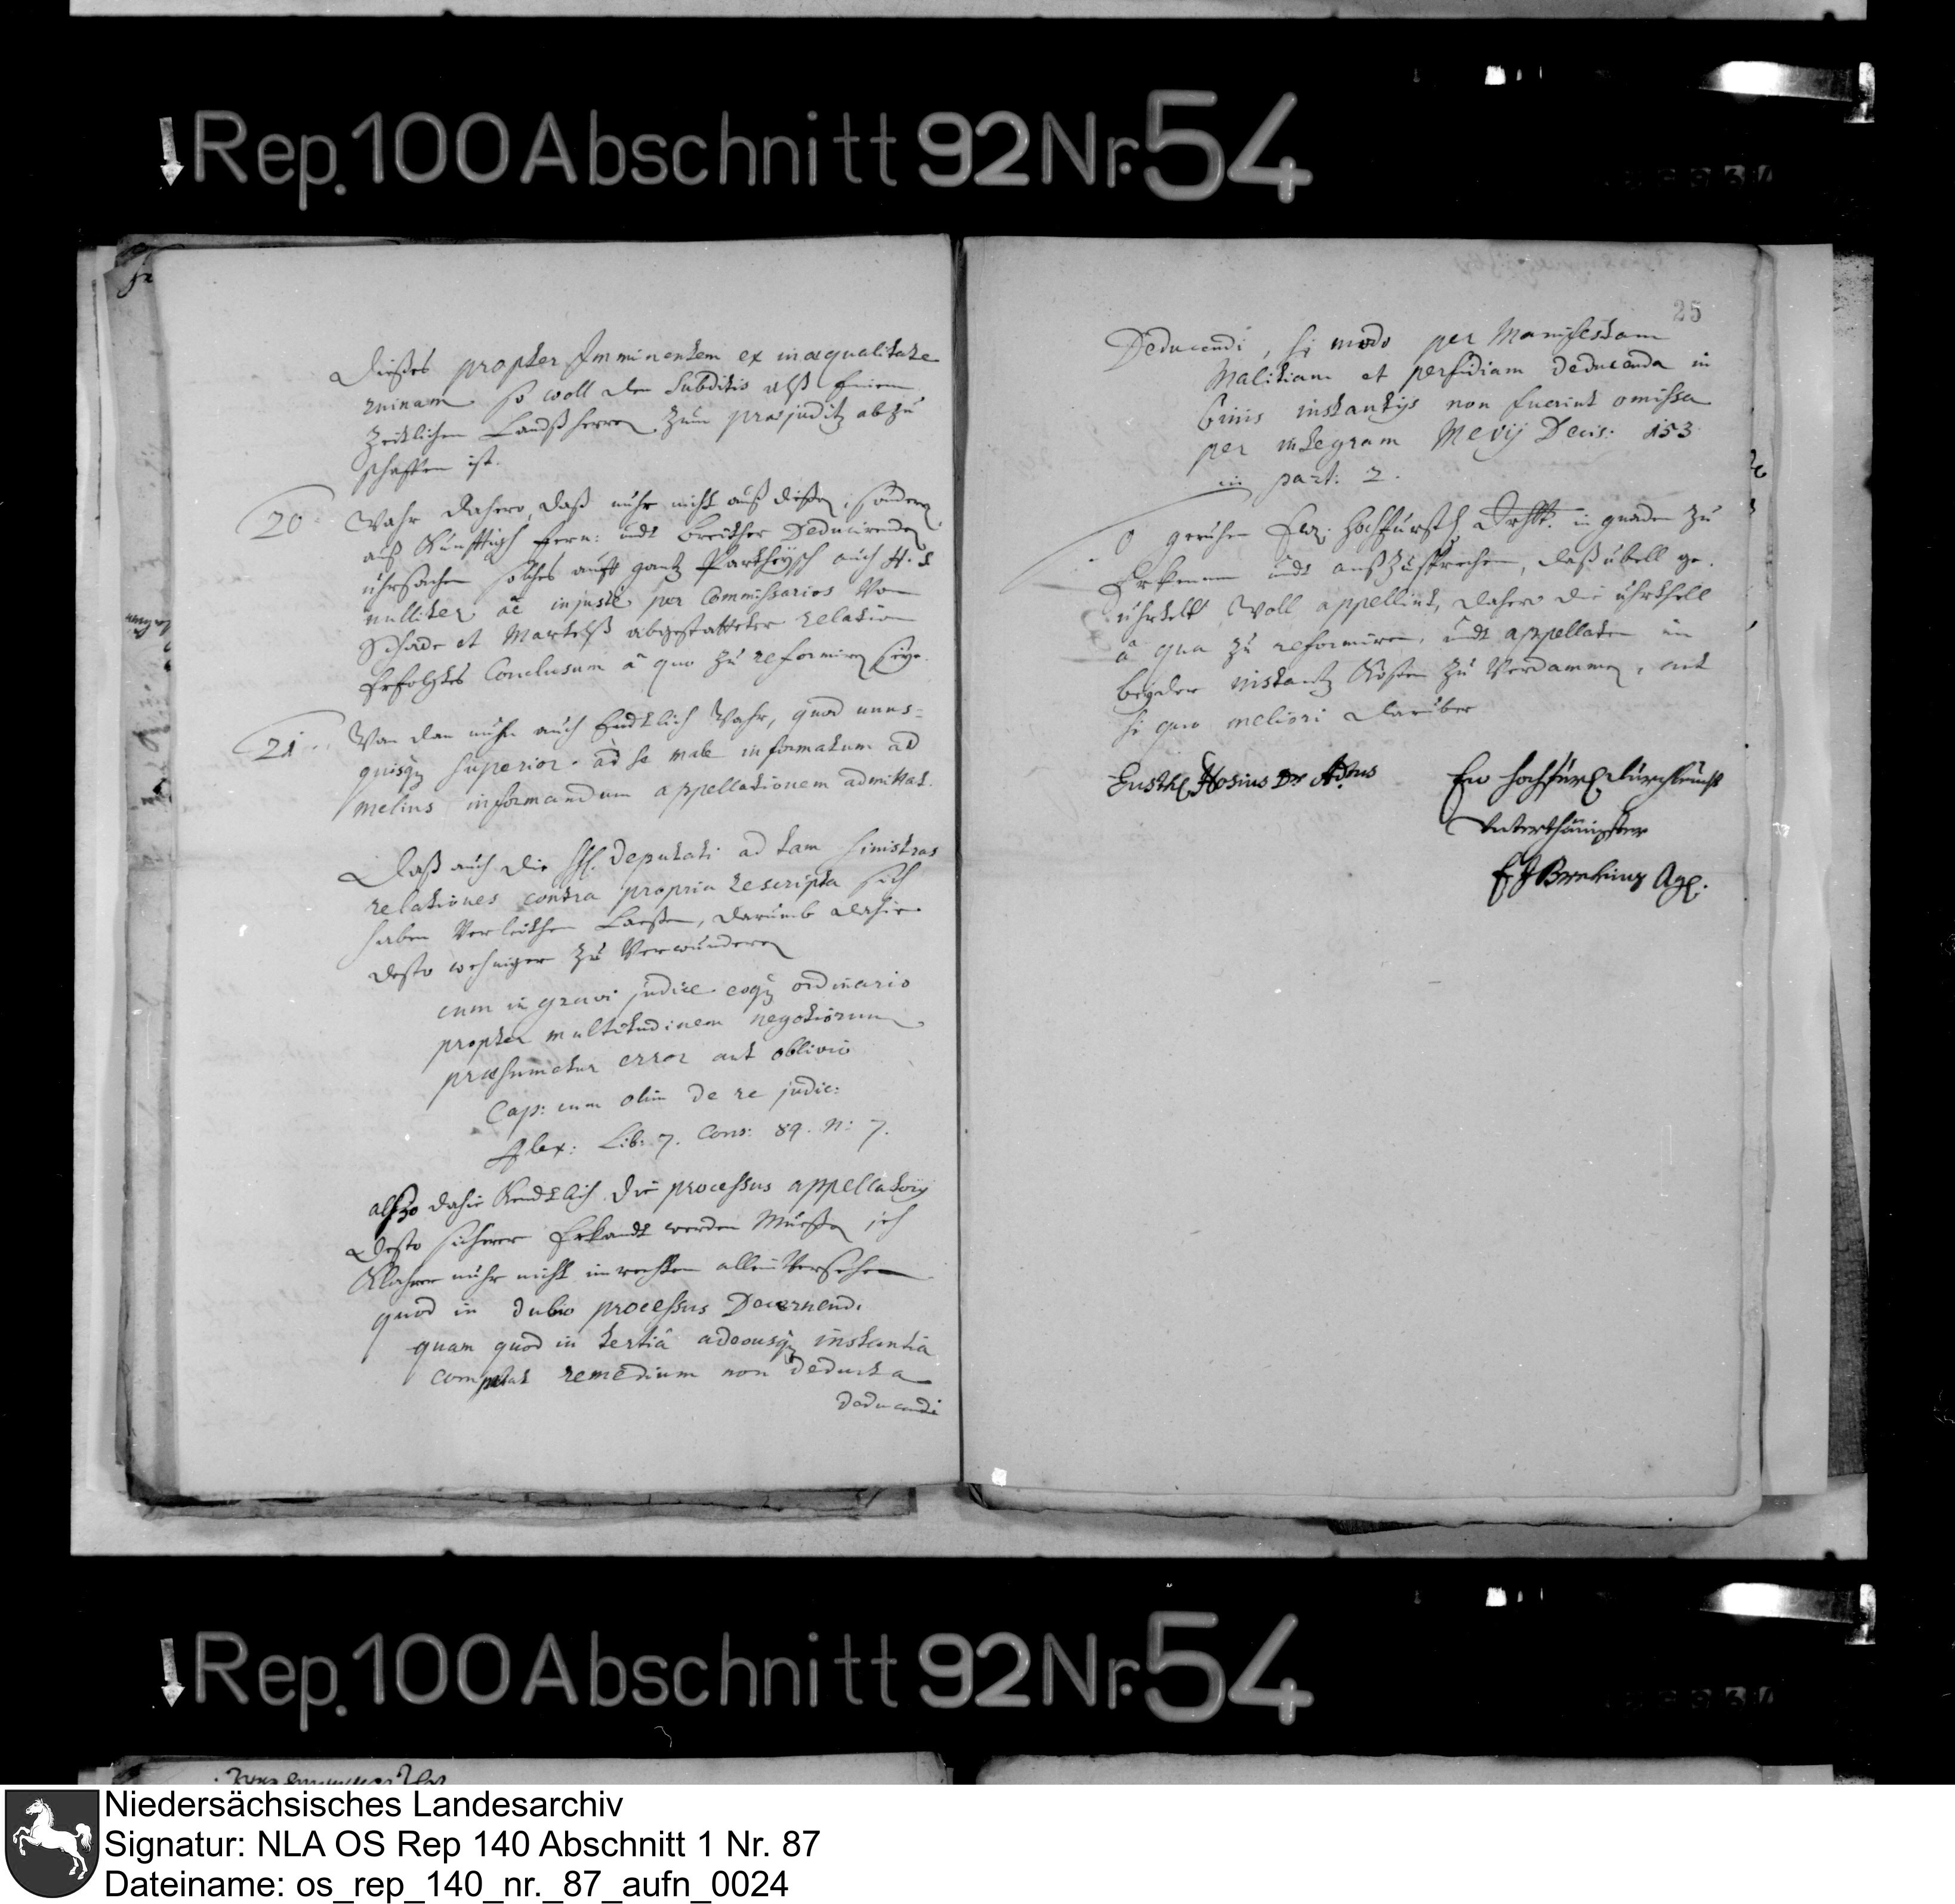 Rep. 100 Abschnitt 92 Nr. 54
dießes propter Imminentem ex inaequalitate
ruinam so woll den Subditis alß Einem
Zeitlichen Landßherren zum praejuditz abzu
schaffen ist.
20. Wahr dahero, daß nuhr nicht auß dießen, sondern
auß Künfftigh fern: undt breither Deducirenden
uhrsachen solches auff gantz Partheysch auch
nulliter ac injuste per Commissarios Von
Schade et Martelß abgestatteter relation
Erfolgtes Conclusum â quo zu reformiren seye.
21. Wan dan nuhn auch Endtlich Wahr, quod unus-
quisq superior ad se male informatum ad
melius informandum appellationem admittat.
Daß auch die HH. Deputati ad tam sinistras
relationes contra propria rescripta sich
haben Verleithen Laeßen, darumb dahie
desto wehniger zu Verwunderen
cum in gravi judice eoq ordinario
propter multitudinem negotiorum
praesumetur error aut oblivio
Cap: cum olim de re judic:
Alex: Lib: 7. Cons: 89. n: 7.
alßo dahie Kendtlich die processus appellatorij
desto sicherer Erkandt werden Müeßen, ich
Klahrer nuhr nicht in rechten allein Versehen
quod in dubio processus Decernendi
quam quod in tertiâ adeousq instantia
competat remedium non deducta
deducendi
25
Deducendi, si modo per Manifestam
Malitiam et perfidiam deducenda in
binis instantijs non fuerint omissa
per integram Mevij Decis: 153
in part: 2.
O geruhen Ew: Hochfürstl Drhltt. in gnaden zu
Erkennen undt außzusprechen, daß übell ge-
uhrtelt Woll appellirt, dahero die uhrthell
â qua zu reformiren, undt appellaten in
beyder instantz Kösten zu Verdammen, aut
si quo meliori darüber
Hosius Dr
Ew Hochfürstl Durchleucht
Unterthänigster
Rep. 100 Abschnitt 92 Nr. 54
Niedersächsisches Landesarchiv
Signatur: NLA OS Rep 140 Abschnitt 1 Nr. 87
Dateiname: os_rep_140_nr._87_aufn_0024